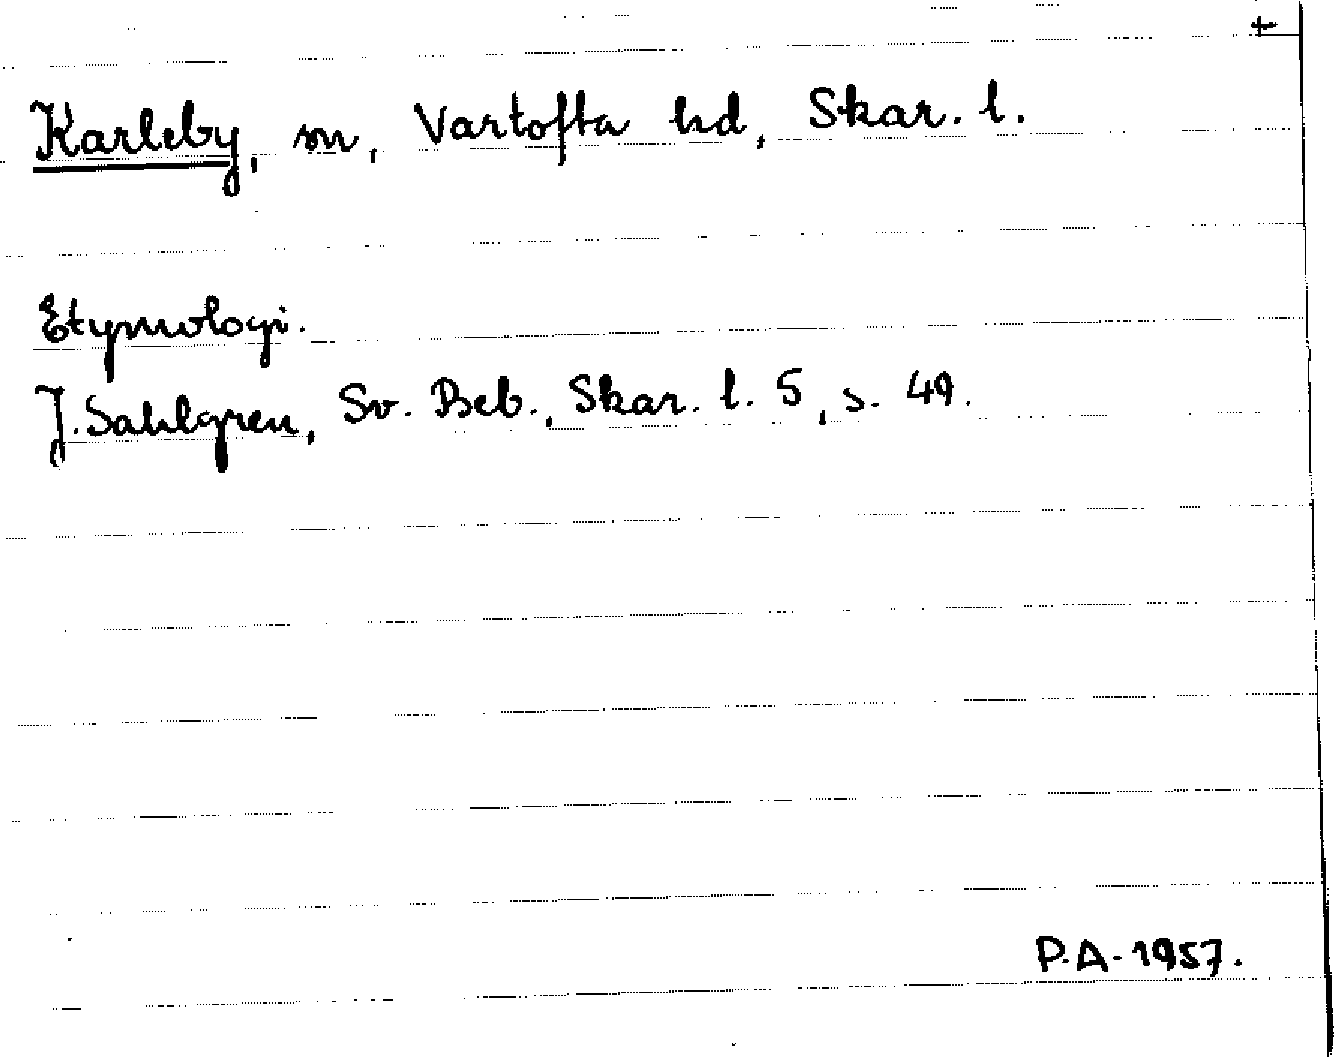 +
Karleby, sn, Vartofta hd, Skar. l.
Etymologi.
J. Sahlgren, Sv. Beb., Skar. l. 5, s. 49.
P.A. 1957.